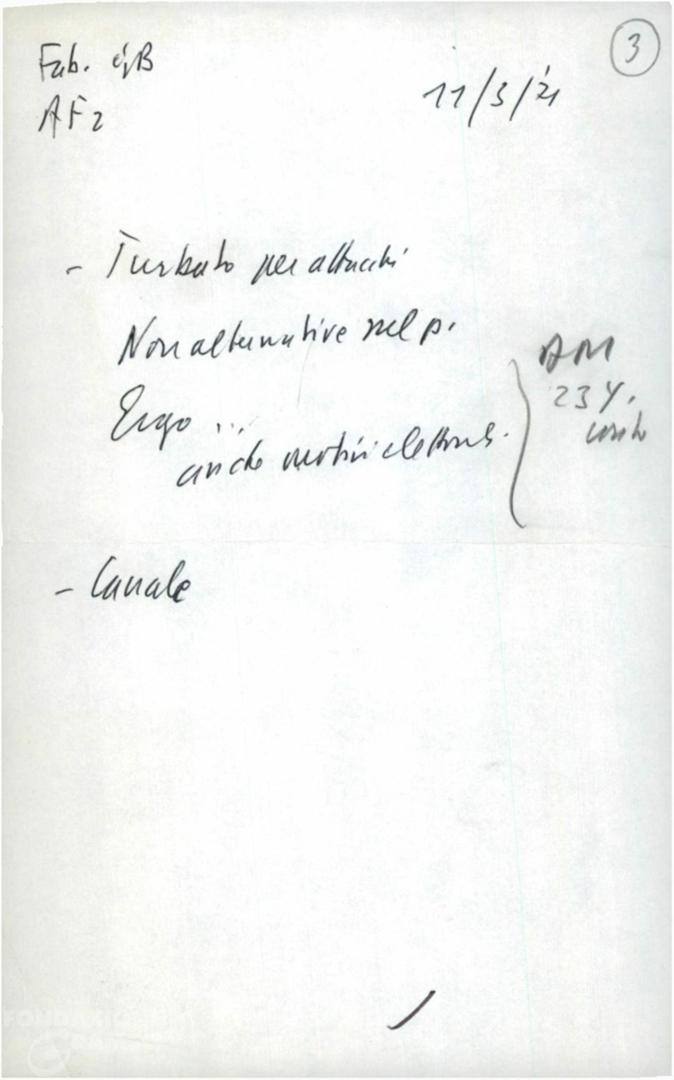 3
Fab. e/o B
AF2
11/3/'71
- Turbato per attacchi
Non alternative nel p.
Ergo ...
anche motivi elettorali.
AM
234.
- Canale
FONDAZIONE